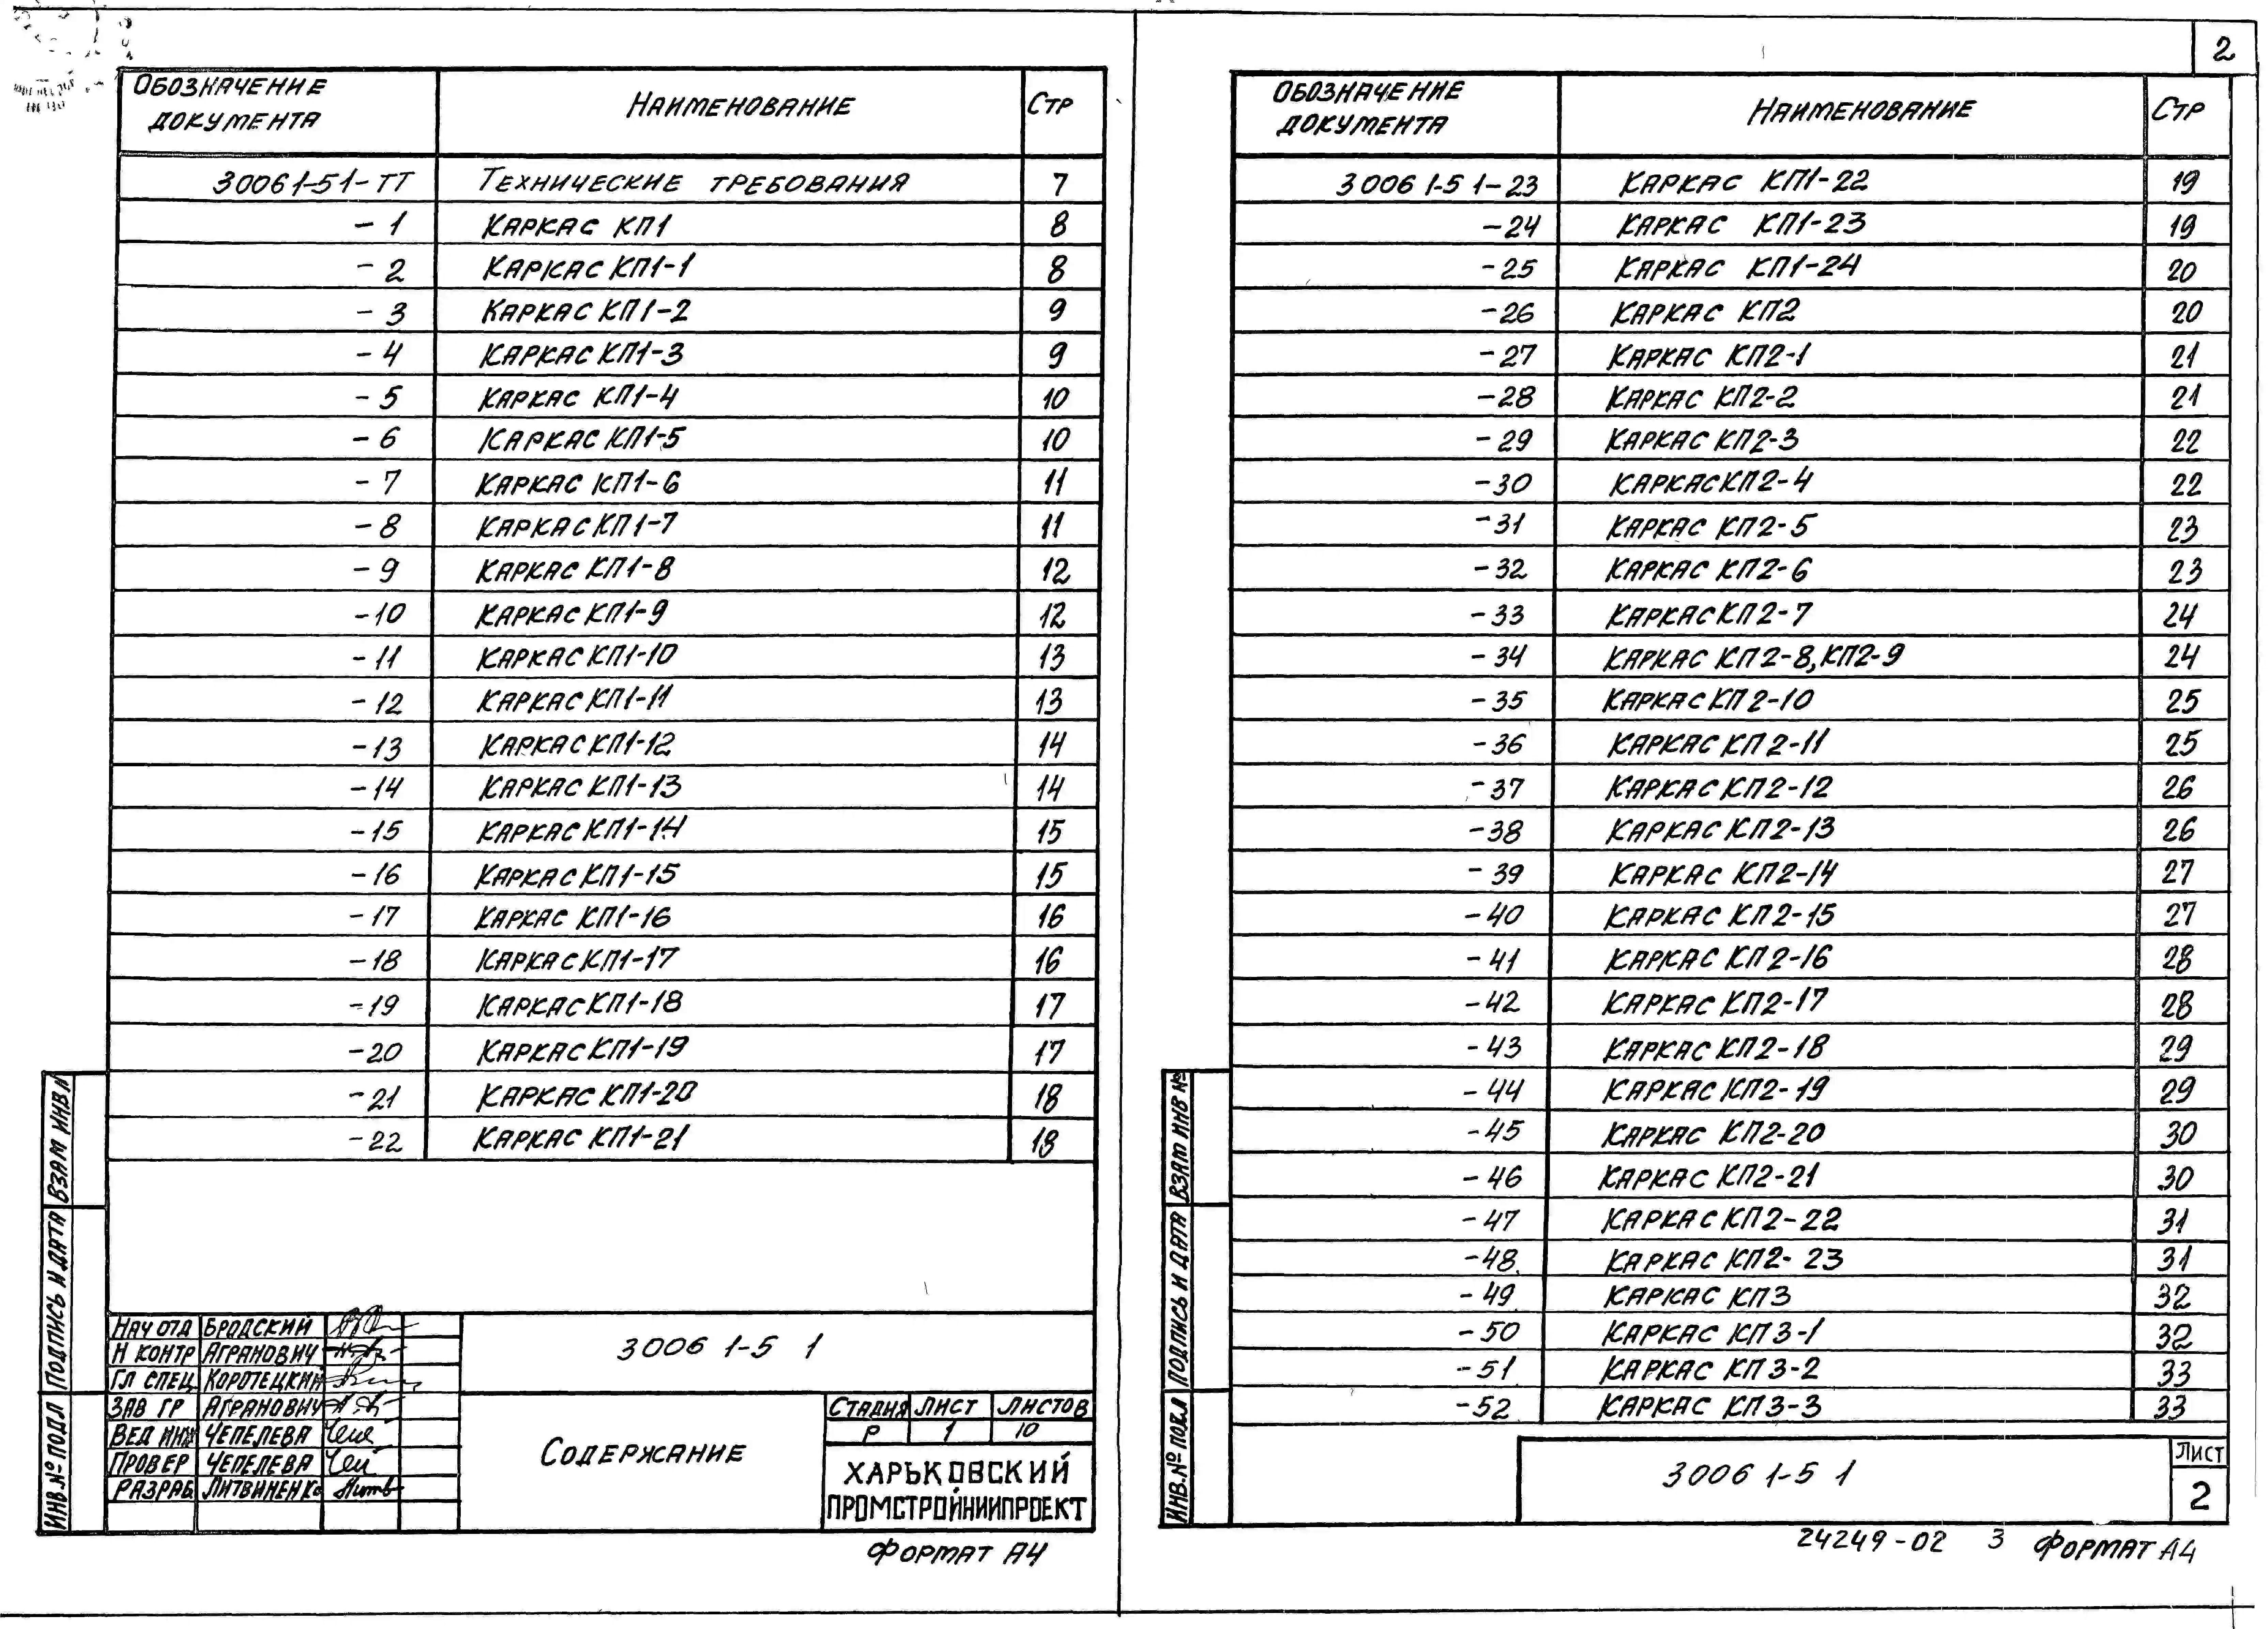 Обозначение документа Наименование Стр
3006 1-5 1-ТТ Технические требования 7
-1 Каркас КП1 8
-2 Каркас КП1-1 8
-3 Каркас КП1-2 9
-4 Каркас КП1-3 9
-5 Каркас КП1-4 10
-6 Каркас КП1-5 10
-7 Каркас КП1-6 11
-8 Каркас КП1-7 11
-9 Каркас КП1-8 12
-10 Каркас КП1-9 12
-11 Каркас КП1-10 13
-12 Каркас КП1-11 13
-13 Каркас КП1-12 14
-14 Каркас КП1-13 14
-15 Каркас КП1-14 15
-16 Каркас КП1-15 15
-17 Каркас КП1-16 16
-18 Каркас КП1-17 16
-19 Каркас КП1-18 17
-20 Каркас КП1-19 17
-21 Каркас КП1-20 18
-22 Каркас КП1-21 18
Взам инв.
Подпись и дата
Инв.№ подл
Нач отд Бродский
Н контр Агранович
Гл спец Коротецкий
Зав гр Агранович
Вед инж Чепелева
Провер Чепелева
Разраб Литвиненко
3006 1-5 1
Содержание
Стадия Лист Листов
Р 1 10
ХАРЬКОВСКИЙ
ПРОМСТРОЙНИИПРОЕКТ
Формат А4
2
Обозначение документа Наименование Стр
3006 1-5 1-23 Каркас КП1-22 19
-24 Каркас КП1-23 19
-25 Каркас КП1-24 20
-26 Каркас КП2 20
-27 Каркас КП2-1 21
-28 Каркас КП2-2 21
-29 Каркас КП2-3 22
-30 Каркас КП2-4 22
-31 Каркас КП2-5 23
-32 Каркас КП2-6 23
-33 Каркас КП2-7 24
-34 Каркас КП2-8, КП2-9 24
-35 Каркас КП2-10 25
-36 Каркас КП2-11 25
-37 Каркас КП2-12 26
-38 Каркас КП2-13 26
-39 Каркас КП2-14 27
-40 Каркас КП2-15 27
-41 Каркас КП2-16 28
-42 Каркас КП2-17 28
-43 Каркас КП2-18 29
-44 Каркас КП2-19 29
-45 Каркас КП2-20 30
-46 Каркас КП2-21 30
-47 Каркас КП2-22 31
-48 Каркас КП2-23 31
-49 Каркас КП3 32
-50 Каркас КП3-1 32
-51 Каркас КП3-2 33
-52 Каркас КП3-3 33
Взам инв №
Подпись и дата
Инв.№ подл
3006 1-5 1
Лист
2
24249-02 3 Формат А4